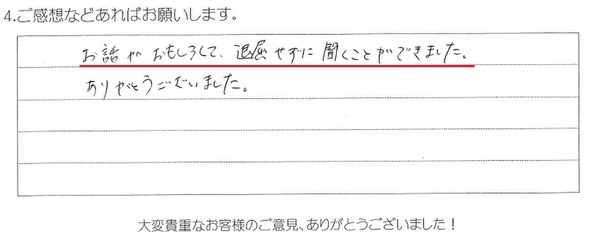 4.ご感想などあればお願いします。
お話がおもしろくて、退屈せずに聞くことができました。
ありがとうございました。
大変貴重なお客様のご意見、ありがとうございました！